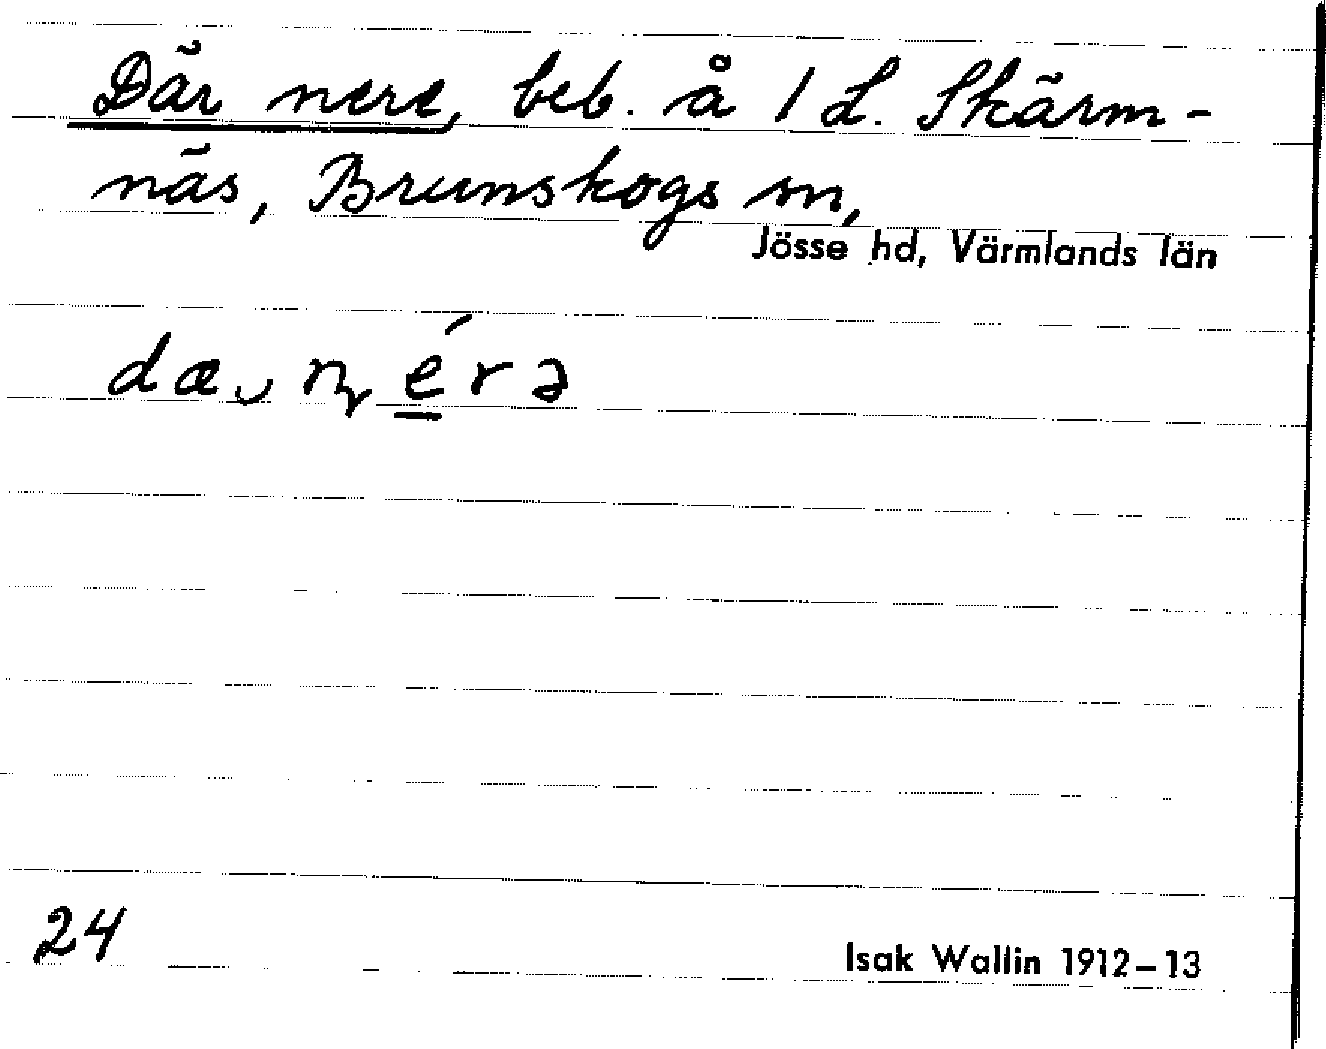 Där nere, beb. å 1 L. Skärm-
näs, Brunskogs sn,
Jösse hd, Värmlands län
dæ‿ɳérə
24
Isak Wallin 1912–13